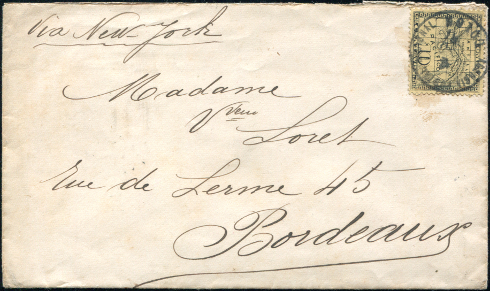 Via New-York
Madame
Vve Loret
Rue de Lerme 45
Bordeaux
10